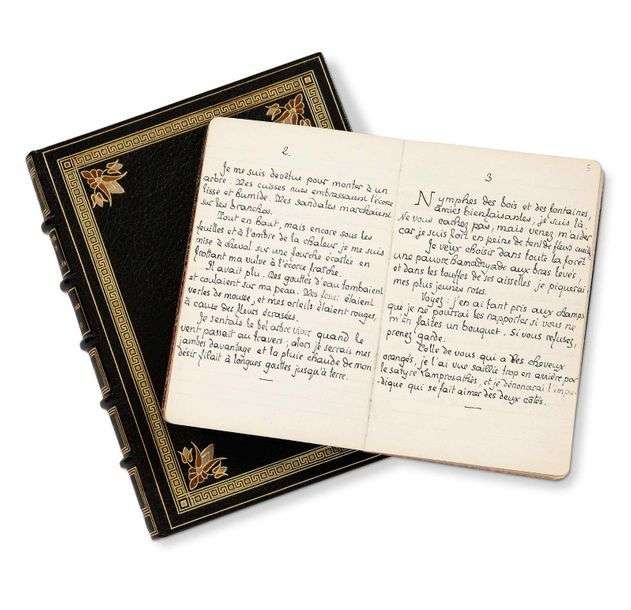 2.
Je me suis devêtue pour monter à un
arbre. Mes cuisses nues embrassaient l'écorce
lisse et humide. Mes sandales marchaient
sur les branches.
Tout en haut, mais encore sous les
feuilles et à l'ombre de la chaleur je me suis
mise à cheval sur une fourche écartée en
frottant ma vulve à l'écorce fraîche.
Il avait plu. Des gouttes d'eau tombaient
et coulaient sur ma peau. Mes étaient
vertes de mousse, et mes orteils étaient rouges,
à cause des fleurs écrasées.
Je sentais le bel arbre vivre quand le
vent passait au travers; alors je serrais mes
jambes davantage et la pluie chaude de mon
désir filait à longues gouttes jusqu'à terre.
5
3
Nymphes des bois et des fontaines,
amies bienfaisantes, je suis là.
Ne vous cachez pas, mais venez m'aider
car je suis fort en peine de tant de fleurs
Je veux choisir dans toute la forêt
une pauvre hamadryade aux bras levés
et dans les touffes de ses aisselles je piquerai
mes plus jeunes roses.
Voyez: j'en ai tant pris aux champs
que je ne pourrai les rapporter si vous ne
m'en faites un bouquet. Si vous refusez,
prenez garde.
Celle de vous qui a des cheveux
orangés, je l'ai vue saillie trop en arrière par
le satyre Lamprosathès, et je dénoncerai l'impu-
dique qui se fait aimer des deux côtés.